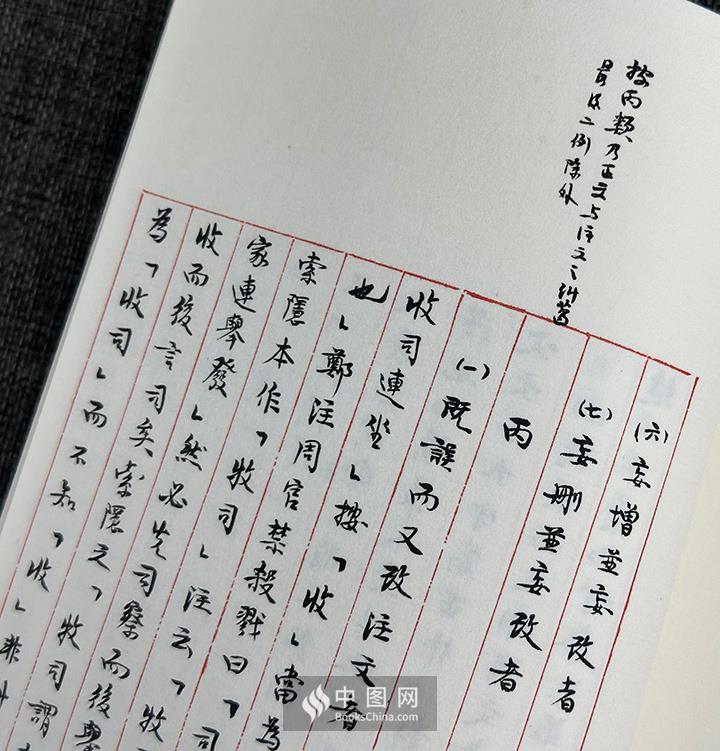 按丙類乃正文与注文之糾葛
最後二例除外
(六)妄增並妄改者
(七)妄刪並妄改者
丙
(一)既誤而又改注文者
收司連坐」按「收」當為
也」鄭注周官禁殺戮曰「司
索隱本作「牧司」注云「牧
家連舉發」然必先司察而後舉
收而後言司矣索隱之「牧司謂
為「收司」而不知「收」非
中图网
BooksChina.com